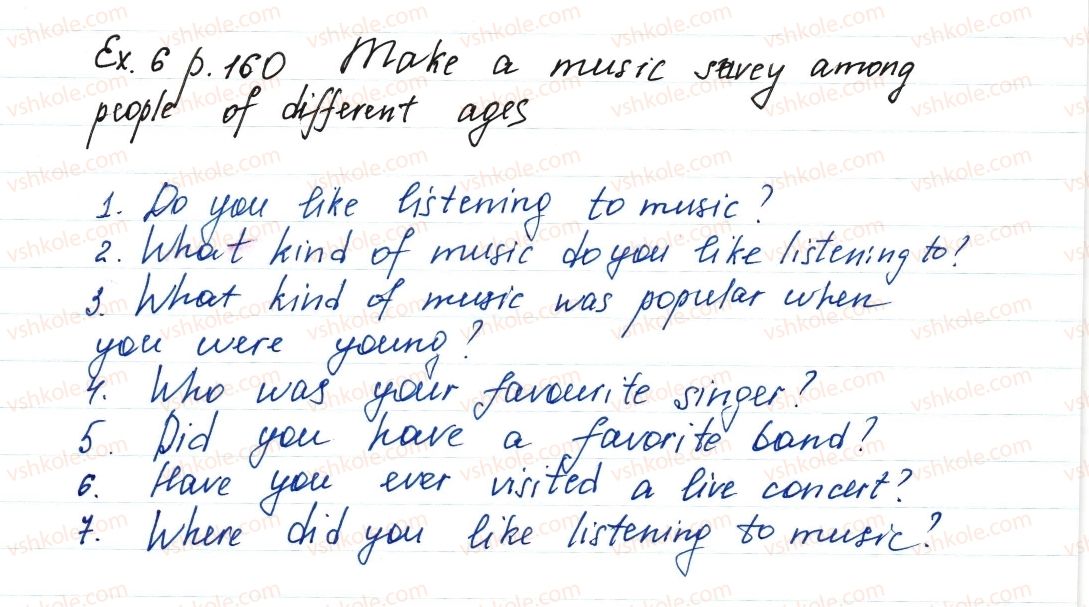 Ex. 6 p. 160 Make a music suvey among
people of different ages
1. Do you like listening to music?
2. What kind of music do you like listening to?
3. What kind of music was popular when
you were young?
4. Who was your favourite singer?
5. Did you have a favorite band?
6. Have you ever visited a live concert?
7. Where did you like listening to music?
vshkole.com